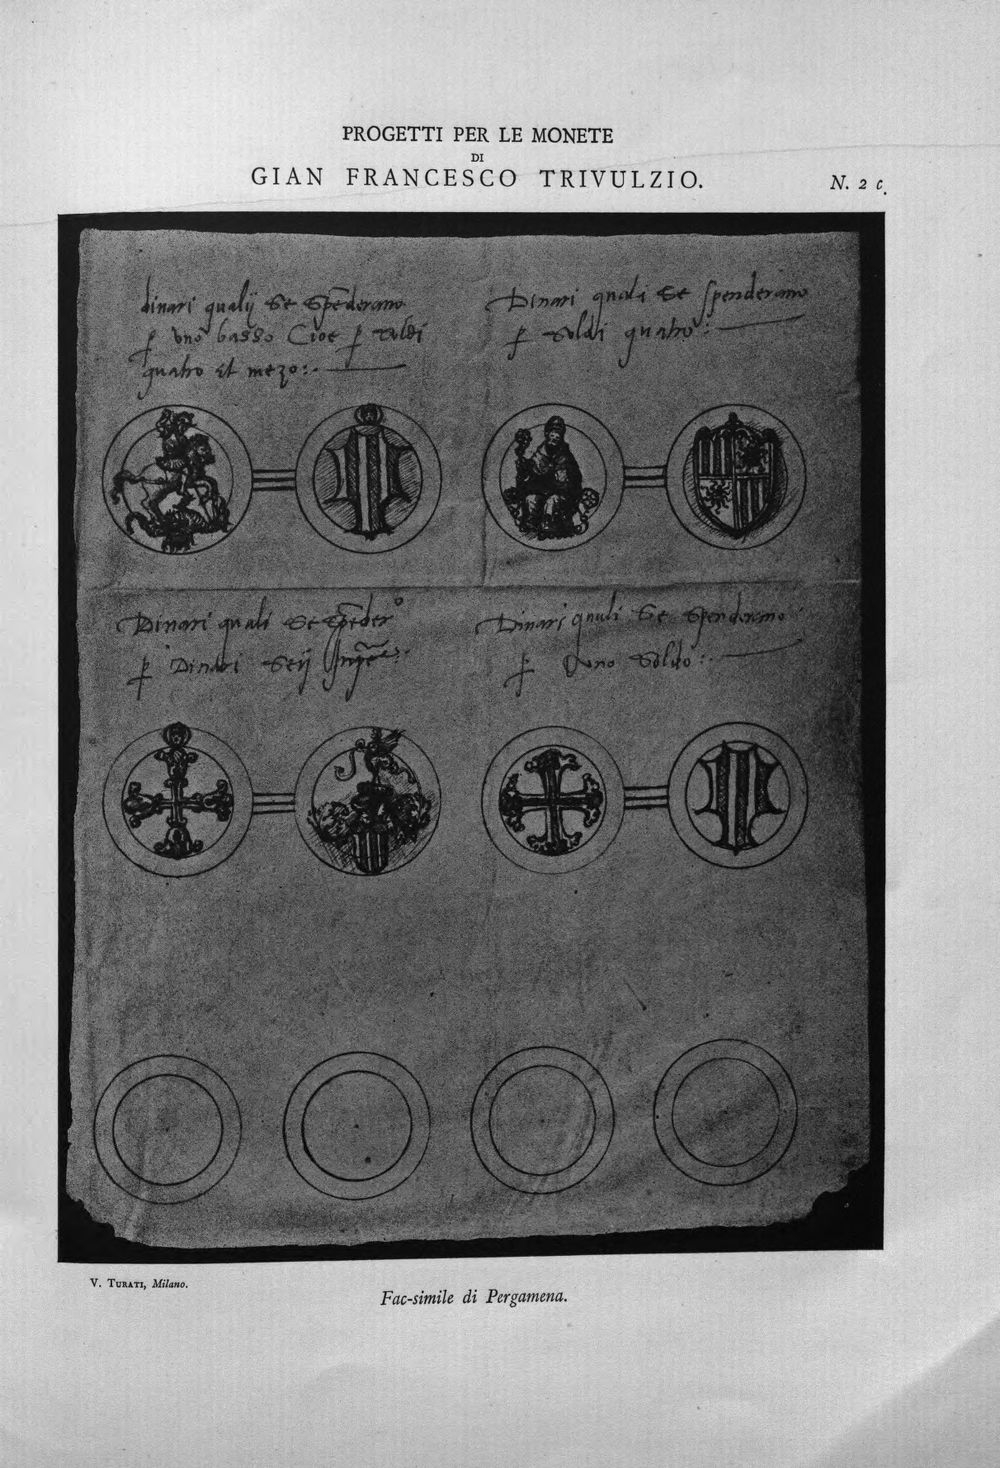 PROGETTI PER LE MONETE
DI
GIAN FRANCESCO TRIVULZIO.
N. 2 c.
dinari qualij se spēderano
ꝑ uno basso Cioe ꝑ soldi
quatro et mezo:.
Dinari quali se spenderano
ꝑ soldi quatro:
Dinari quali se spēder°
ꝑ Dinari seij
Dinari quali se spenderano
ꝑ uno soldo:.
V. TURATI, Milano.
Fac-simile di Pergamena.